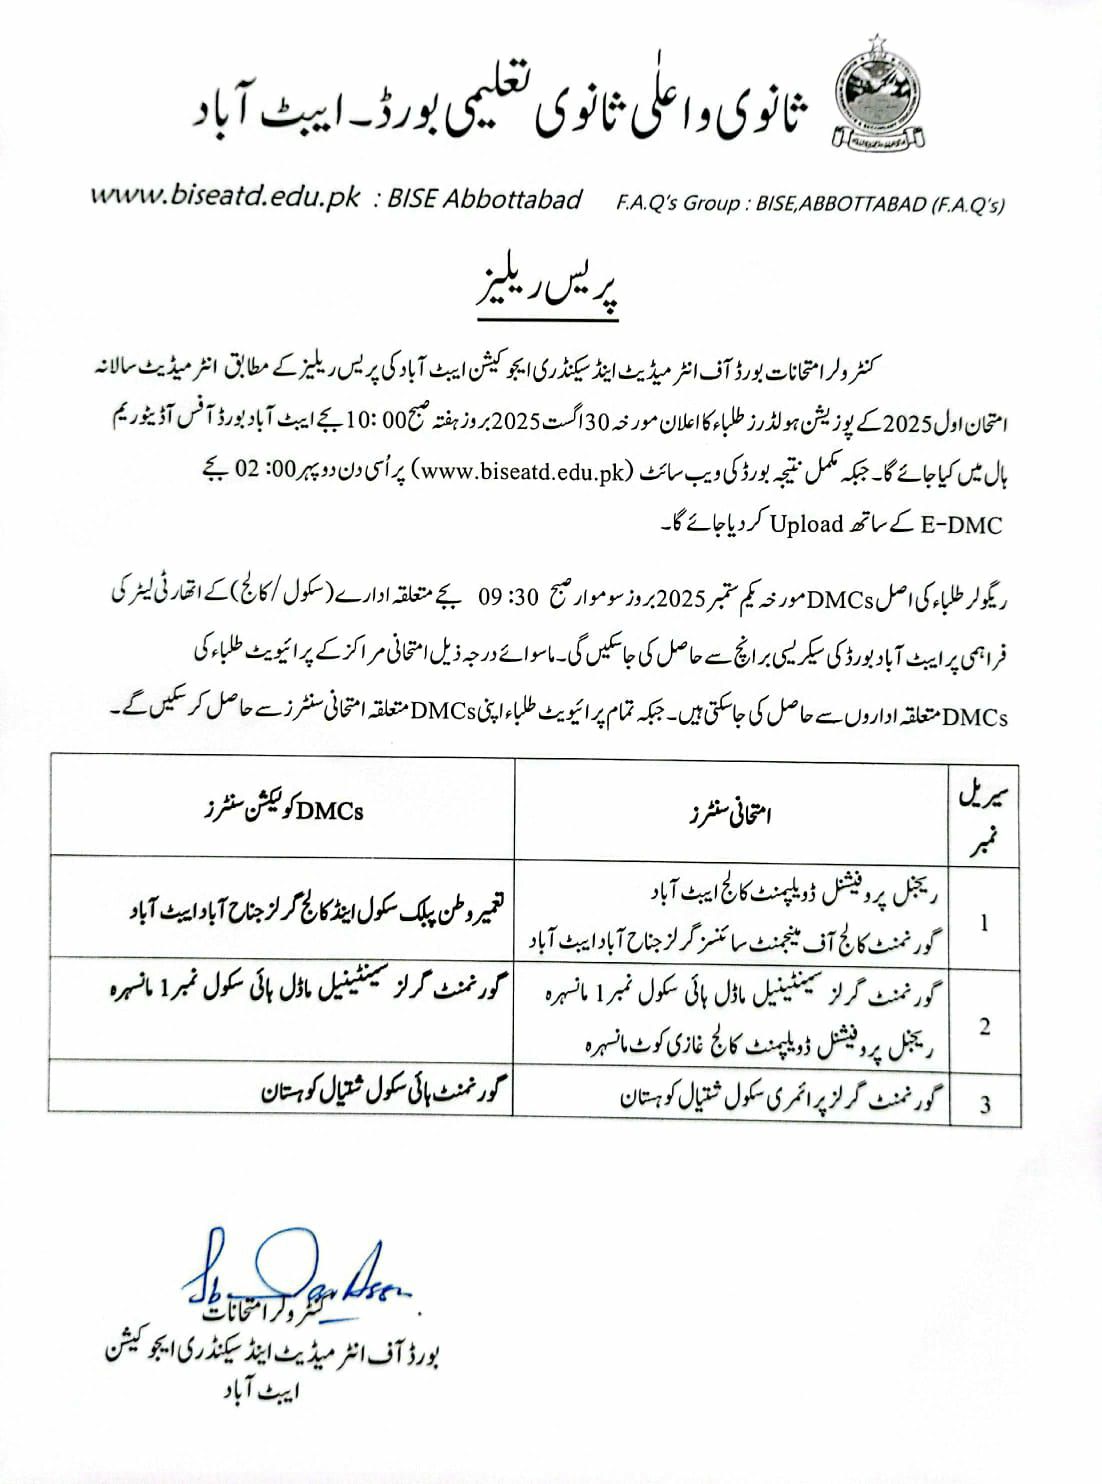 ثانوی و اعلٰی ثانوی تعلیمی بورڈ۔ ایبٹ آباد
www.biseatd.edu.pk : BISE Abbottabad F.A.Q's Group : BISE,ABBOTTABAD (F.A.Q's)
پریس ریلیز
کنٹرولر امتحانات بورڈ آف انٹر میڈیٹ اینڈ سیکنڈری ایجوکیشن ایبٹ آباد کی پریس ریلیز کے مطابق انٹر میڈیٹ سالانہ
امتحان اول 2025 کے پوزیشن ہولڈرز طلباء کا اعلان مورخہ 30 اگست 2025 بروز ہفتہ صبح 10:00 بجے ایبٹ آباد بورڈ آفس آڈیٹوریم
ہال میں کیا جائے گا۔ جبکہ مکمل نتیجہ بورڈ کی ویب سائٹ (www.biseatd.edu.pk) پر اُسی دن دوپہر 02:00 بجے
E-DMC کے ساتھ Upload کر دیا جائے گا۔
ریگولر طلباء کی اصل DMCs مورخہ یکم ستمبر 2025 بروز سوموار صبح 09:30 بجے متعلقہ ادارے (سکول / کالج) کے اتھارٹی لیٹر کی
فراہمی پر ایبٹ آباد بورڈ کی سیکریسی برانچ سے حاصل کی جا سکیں گی۔ ماسوائے درجہ ذیل امتحانی مراکز کے پرائیویٹ طلباء کی
DMCs متعلقہ اداروں سے حاصل کی جا سکتی ہیں۔ جبکہ تمام پرائیویٹ طلباء اپنی DMCs متعلقہ امتحانی سنٹرز سے حاصل کر سکیں گے۔
سیریل نمبر امتحانی سنٹرز DMCs کولیکشن سنٹرز
1 ریجنل پروفیشنل ڈویلپمنٹ کالج ایبٹ آباد
گورنمنٹ کالج آف مینجمنٹ سائنسز گرلز جناح آباد ایبٹ آباد
تعمیر وطن پبلک سکول اینڈ کالج گرلز جناح آباد ایبٹ آباد
2 گورنمنٹ گرلز سینٹینیل ماڈل ہائی سکول نمبر 1 مانسہرہ
ریجنل پروفیشنل ڈویلپمنٹ کالج غازی کوٹ مانسہرہ
گورنمنٹ گرلز سینٹینیل ماڈل ہائی سکول نمبر 1 مانسہرہ
3 گورنمنٹ گرلز پرائمری سکول شتیال کوہستان
گورنمنٹ ہائی سکول شتیال کوہستان
کنٹرولر امتحانات
بورڈ آف انٹر میڈیٹ اینڈ سیکنڈری ایجوکیشن
ایبٹ آباد